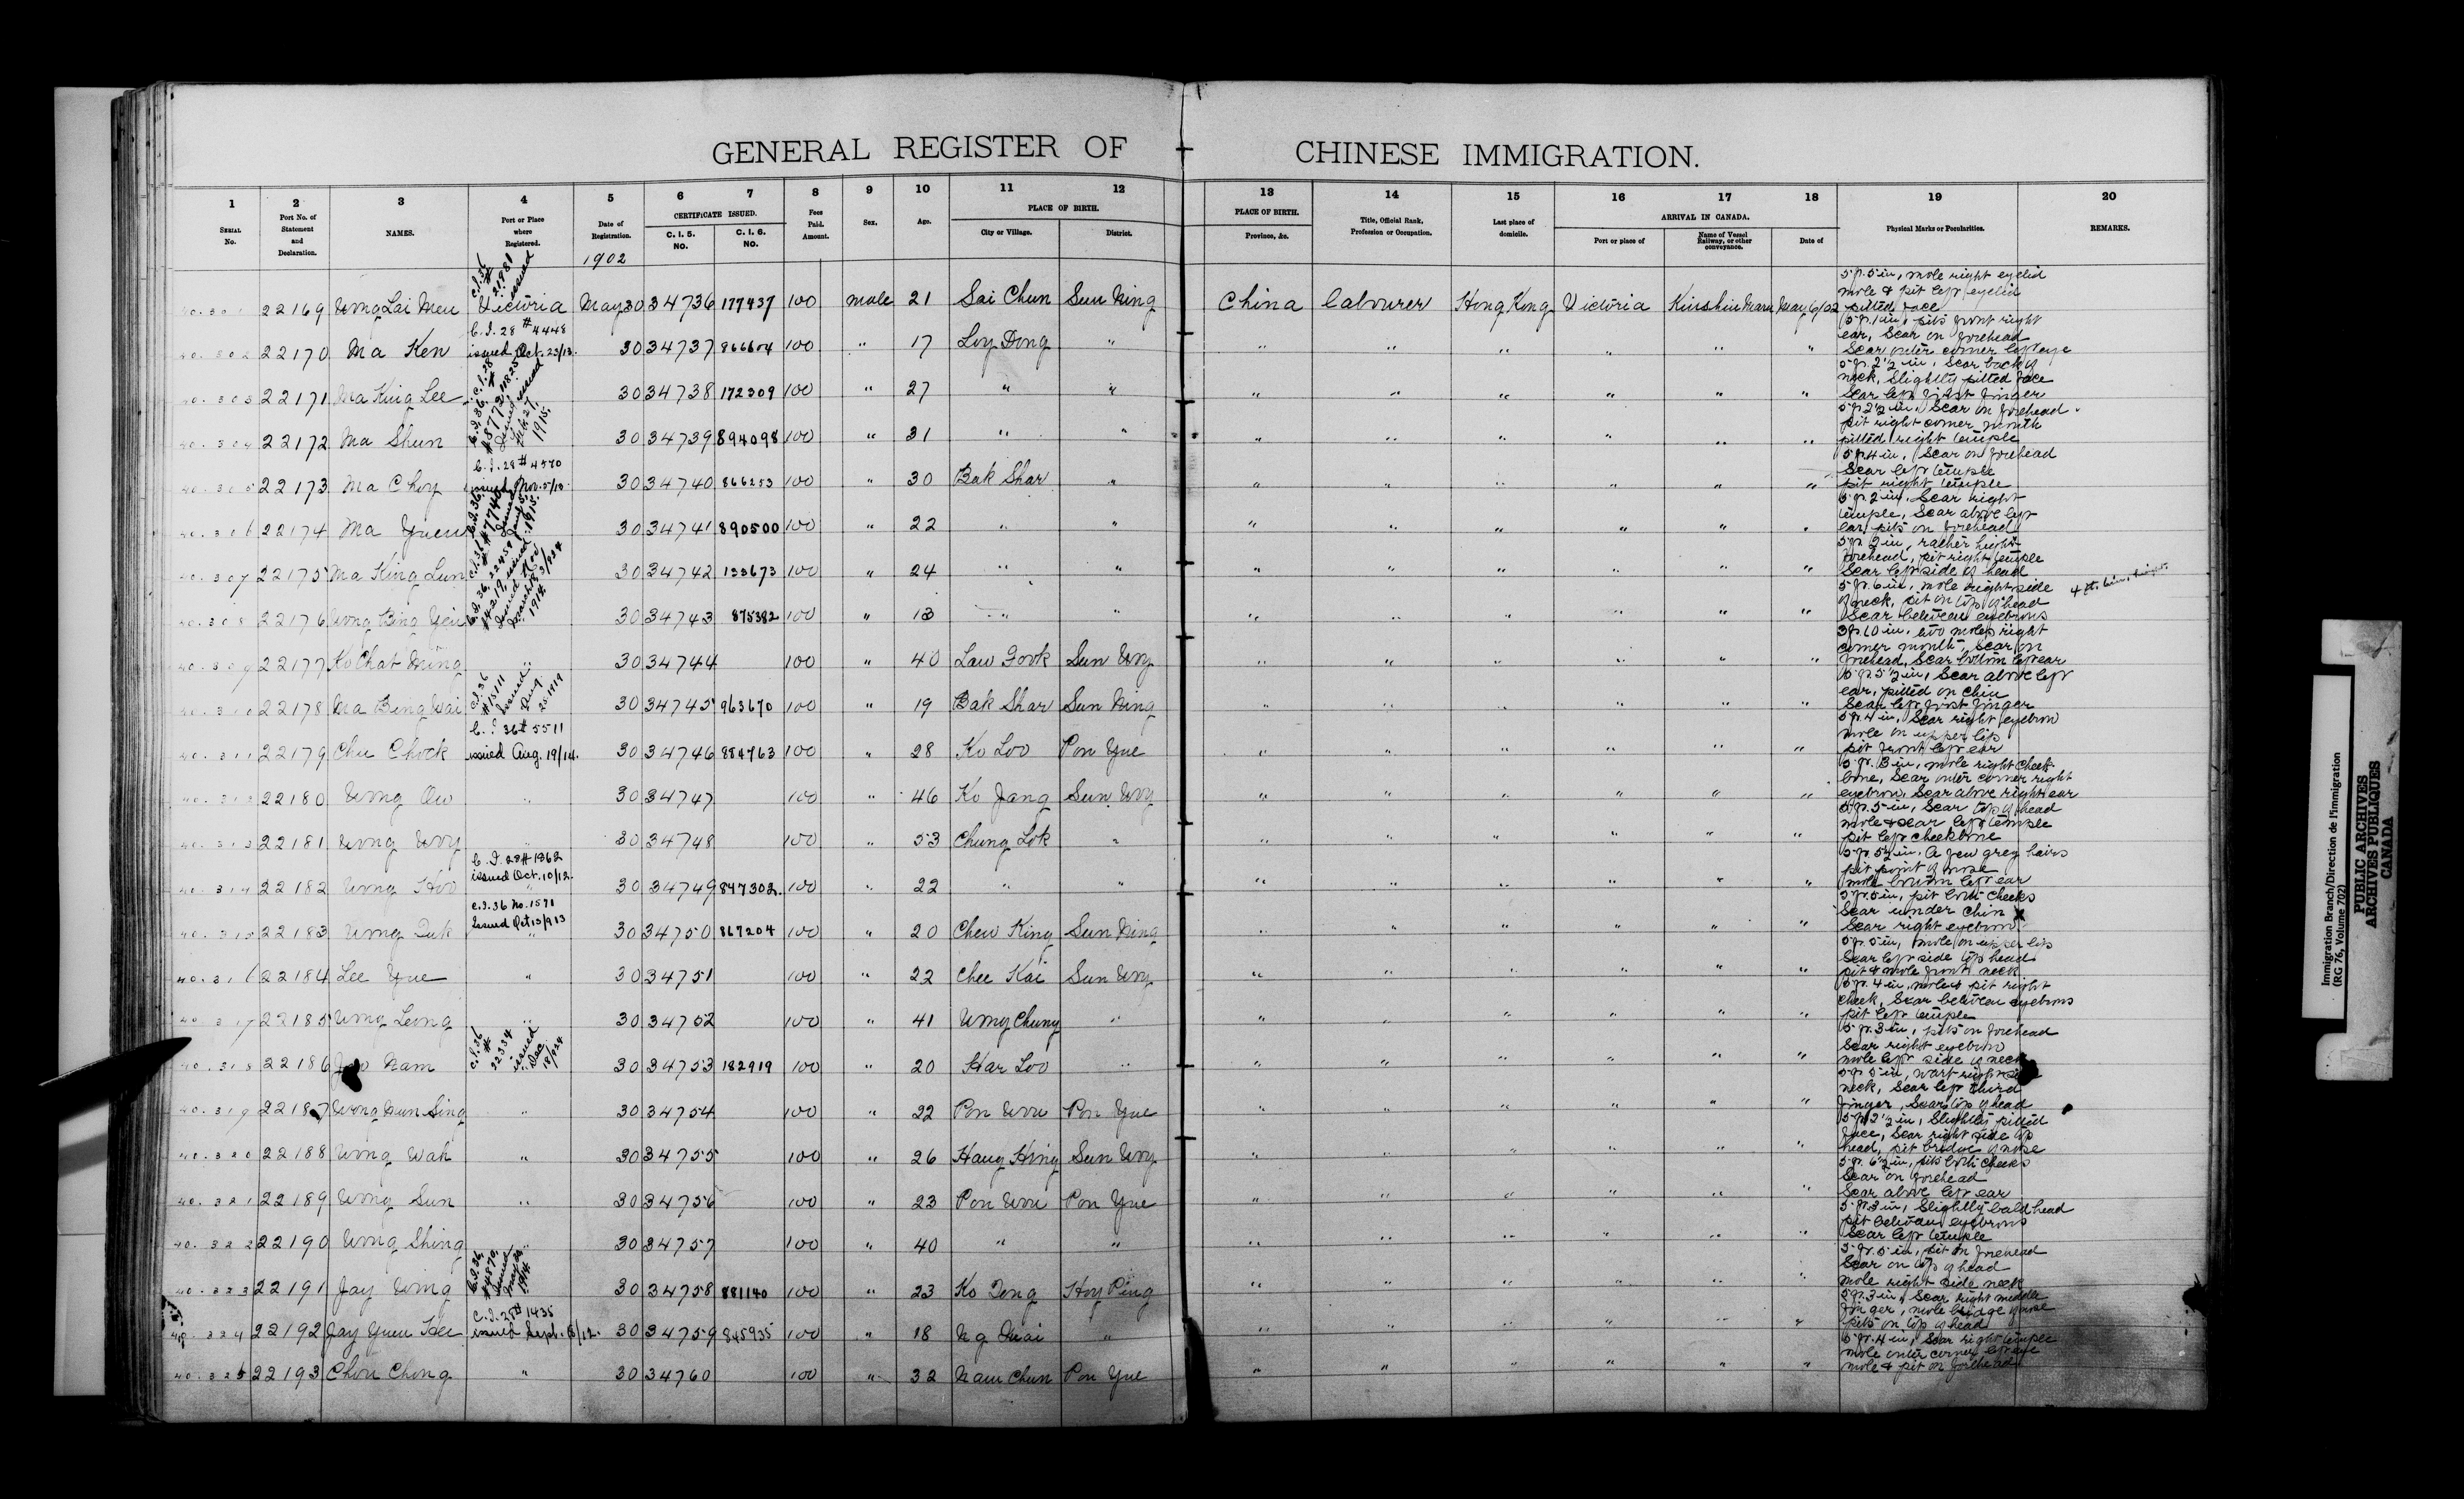 GENERAL REGISTER OF CHINESE IMMIGRATION.
1 2 3 4 5 6 7 8 9 10 11 12 13 14 15 16 17 18 19 20
SERIAL No. Port No. of Statement and Declaration. NAMES. Port or Place where Registered. Date of Registration. CERTIFICATE ISSUED. C. I. 5. NO. C. I. 6. NO. Fees Paid. Amount. Sex. Age. PLACE OF BIRTH. City or Village. District. PLACE OF BIRTH. Province, &c. Title, Official Rank, Profession or Occupation. Last place of domicile. ARRIVAL IN CANADA. Port or place of Name of Vessel Railway, or other conveyance. Date of Physical Marks or Peculiarities. REMARKS.
1902
C.I.36 # 21981 issued
40.301 22169 Wong Lai Meu Victoria May 30 34736 177437 100 male 21 Sai Chun Sun Ning China labourer Hong Kong Victoria Kinshiu Maru May 6/02 5 ft. 5 in, mole right eyelid mole & pit left eyelid pitted face
40.302 22170 Ma Ken C.I. 28 # 4448 issued Oct. 23/13. 30 34737 866604 100 " 17 Loy Dong " " " " " " " 5 ft. 1 in, pits front right ear, Scar on forehead Scar outer corner left eye
40.303 22171 Ma King Lee 30 34738 172309 100 " 27 " " " " " " " " 5 ft. 2½ in, Scar back of neck, Slightly pitted face Scar left first finger
40.304 22172 Ma Shun issued Feb. 27. 1915. 30 34739 894098 100 " 31 " " " " " " " " 5 ft 2½ in, Scar on forehead pit right corner mouth pitted right temple
40.305 22173 Ma Choy C.I. 28 # 4570 issued Nov. 5/13. 30 34740 866253 100 " 30 Bak Shar " " " " " " " 5 ft 4 in, Scar on forehead Scar left temple pit right temple
40.306 22174 Ma Yuen 30 34741 890500 100 " 22 " " " " " " " " 5 ft. 2 in. Scar right temple, Scar above left ear, pits on forehead
40.307 22175 Ma King Lun 30 34742 133673 100 " 24 " " " " " " " " 5 ft 2 in, rather high forehead, pit right temple Scar left side of head
40.308 22176 Wong Bing Yeu 30 34743 875382 100 " 13 " " " " " " " " 5 ft. 6 in. mole right side of neck, pit on top of head Scar between eyebrows 4 ft. 6 in.
40.309 22177 Ko Chat Ming " 30 34744 100 " 40 Law Gook Sun Woy " " " " " " 3 ft 10 in, two moles right corner mouth, Scar on forehead, Scar bottom left ear
40.310 22178 Ma Bing Wai C.I.36 # 15111 issued Aug 25 1919 30 34745 963670 100 " 19 Bak Shar Sun Ning " " " " " " 5 ft 5½ in, Scar above left ear, pitted on chin Scar left first finger
40.311 22179 Chu Chock C.I. 36 # 5511 issued Aug. 19/14. 30 34746 884763 100 " 28 Ko Loo Pon Yue " " " " " " 5 ft. 4 in, Scar right eyebrow mole on upper lip pit front left ear
40.312 22180 Wong Ow " 30 34747 100 " 46 Ko Jang Sun Woy " " " " " " 5 ft. 3 in, mole right cheek bone, Scar outer corner right eyebrow, Scar above right ear
40.313 22181 Wong Woy " 30 34748 100 " 53 Chung Lok " " " " " " " 5 ft. 5 in, Scar top of head mole & scar left temple pit left cheekbone
40.314 22182 Wong Hoo C.I. 28 # 1862 issued Oct. 10/12. 30 34749 847302. 100 " 22 " " " " " " " " 5 ft. 5½ in, A few grey hairs pit point of nose mole bottom left ear
40.315 22183 Wong Duk C.I. 36 No. 1571 Issued Oct 13/913 30 34750 867204 100 " 20 Cheu King Sun Ning " " " " " " 5 ft. 5 in, pit both cheeks Scar under chin X Scar right eyebrow
40.316 22184 Lee Yue " 30 34751 100 " 22 Chee Kai Sun Woy " " " " " " 5 ft. 5 in, mole on upper lip Scar left side top head pit & mole front neck
40.317 22185 Wong Leong " 30 34752 100 " 41 Wong Chung " " " " " " " 5 ft. 4 in, mole & pit right cheek, Scar between eyebrows pit left temple
40.318 22186 Nam C.I.36 # 22334 issued Dec 18/924 30 34753 182919 100 " 20 Har Loo " " " " " " " 5 ft. 3 in, pits on forehead Scar right eyebrow mole left side of neck
40.319 22187 Wong Mun Sing " 30 34754 100 " 22 Pon Woo Pon Yue " " " " " " 5 ft 5 in, wart right side neck, Scar left third finger, Scar top of head
40.320 22188 Wong Wah " 30 34755 100 " 26 Hang Hing Sun Woy " " " " " " 5 ft 2½ in, Slightly pitted face, Scar right side top head, pit bridge of nose
40.321 22189 Wong Sun " 30 34756 100 " 23 Pon Woo Pon Yue " " " " " " 5 ft. 6½ in, pits both cheeks Scar on forehead Scar above left ear
40.322 22190 Wong Shing " 30 34757 100 " 40 " " " " " " " " 5 ft 3 in, Slightly bald head pit between eyebrows Scar left temple
40.323 22191 Jay Wing C.I.36. # 4870. issued May 20 1914 30 34758 881140 100 " 23 Ko Dong Hoy Ping " " " " " " 5 ft. 5 in, pit on forehead Scar on top of head mole right side neck
40.324 22192 Jay Yuen Kee C.I. 28 # 1435 issued Sept. 18/12. 30 34759 845935 100 " 18 Ng Mai " " " " " " " 5 ft. 3 in, Scar right middle finger, mole bridge of nose pits on top of head
40.325 22193 Chou Chong " 30 34760 100 " 32 Nam Chun Pon Yue " " " " " " 5 ft. 4 in, Scar right temple mole outer corner left eye mole & pit on forehead
Immigration Branch/Direction de l'immigration
(RG 76, Volume 702)
PUBLIC ARCHIVES
ARCHIVES PUBLIQUES
CANADA